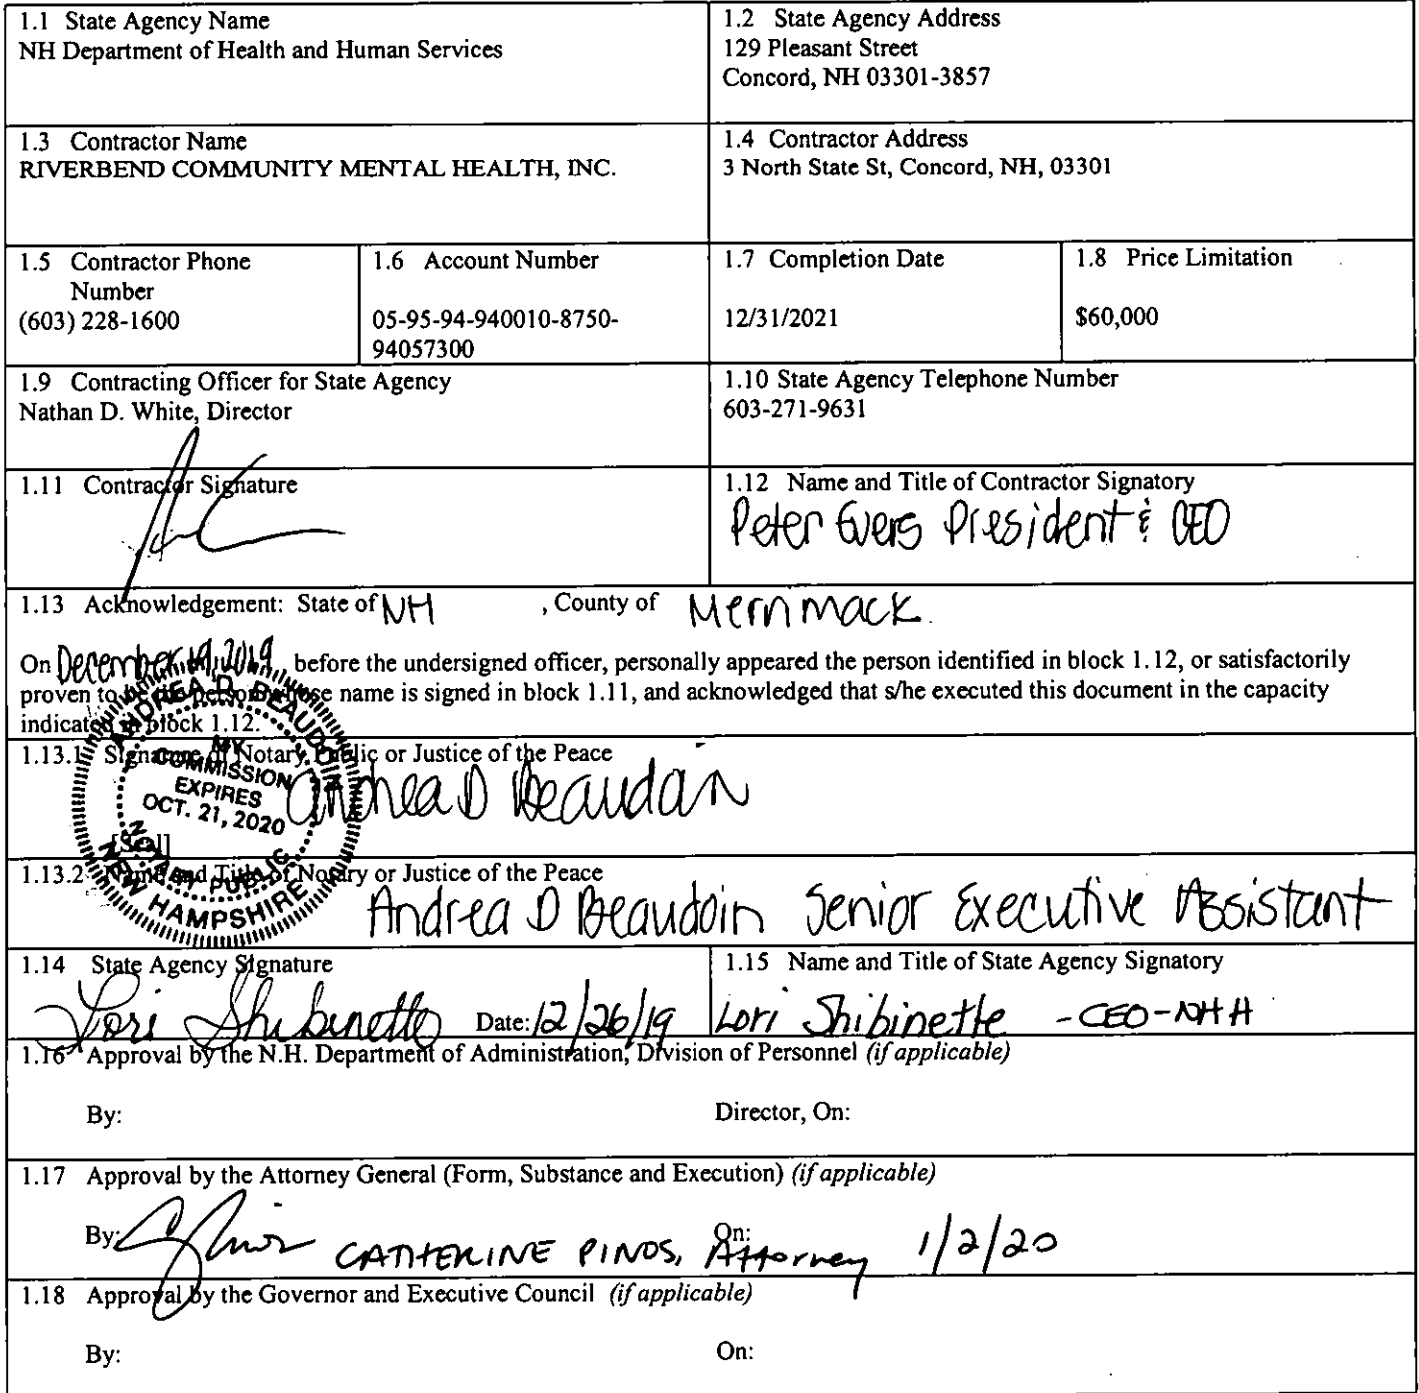 1.1 State Agency Name
NH Department of Health and Human Services
1.2 State Agency Address
129 Pleasant Street
Concord, NH 03301-3857
1.3 Contractor Name
RIVERBEND COMMUNITY MENTAL HEALTH, INC.
1.4 Contractor Address
3 North State St, Concord, NH, 03301
1.5 Contractor Phone
Number
(603) 228-1600
1.6 Account Number
05-95-94-940010-8750-
94057300
1.7 Completion Date
12/31/2021
1.8 Price Limitation
$60,000
1.9 Contracting Officer for State Agency
Nathan D. White, Director
1.10 State Agency Telephone Number
603-271-9631
1.11 Contractor Signature
1.12 Name and Title of Contractor Signatory
Peter Evers President & CEO
1.13 Acknowledgement: State of NH , County of Merrimack
On December 19, 2019, before the undersigned officer, personally appeared the person identified in block 1.12, or satisfactorily
proven to be the person whose name is signed in block 1.11, and acknowledged that s/he executed this document in the capacity
indicated in block 1.12.
1.13.1 Signature of Notary Public or Justice of the Peace
Andrea D Beaudoin
[Seal]
ANDREA D. BEAUDOIN
MY
COMMISSION
EXPIRES
OCT. 21, 2020
NOTARY PUBLIC
NEW HAMPSHIRE
1.13.2 Name and Title of Notary or Justice of the Peace
Andrea D Beaudoin Senior Executive Assistant
1.14 State Agency Signature
Lori Shibinette Date: 12/26/19
1.15 Name and Title of State Agency Signatory
Lori Shibinette - CEO-NHH
1.16 Approval by the N.H. Department of Administration, Division of Personnel (if applicable)
By: Director, On:
1.17 Approval by the Attorney General (Form, Substance and Execution) (if applicable)
By: On:
CATHERINE PINOS, Attorney 1/2/20
1.18 Approval by the Governor and Executive Council (if applicable)
By: On: